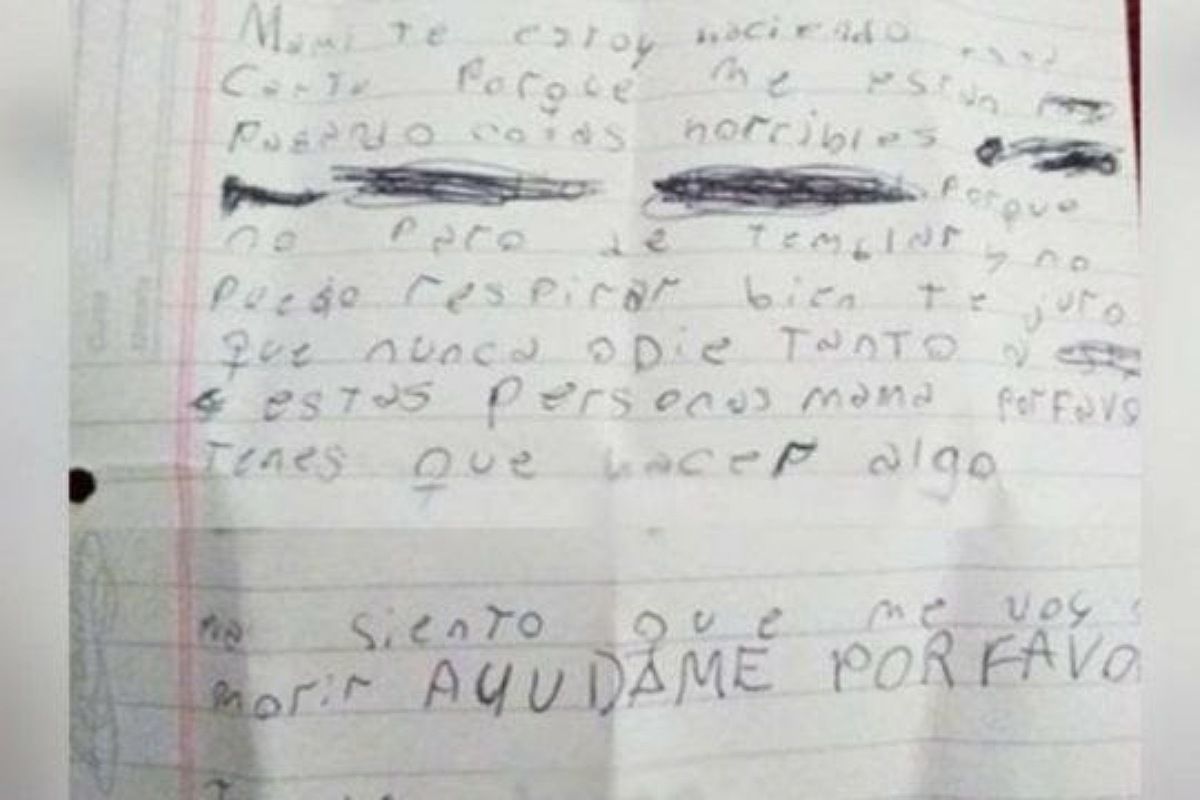 Mami te estoy haciendo esta
Carta Porque me están
Pasando cosas horribles
Porque
no Paro de Temblar y no
Puedo respirar bien te juro
Que nunca odie TanTO a
estas Personas mama PorFavo
Tenes que hacer algo
siento que me voy a
morir AYUDAME POR FAVO